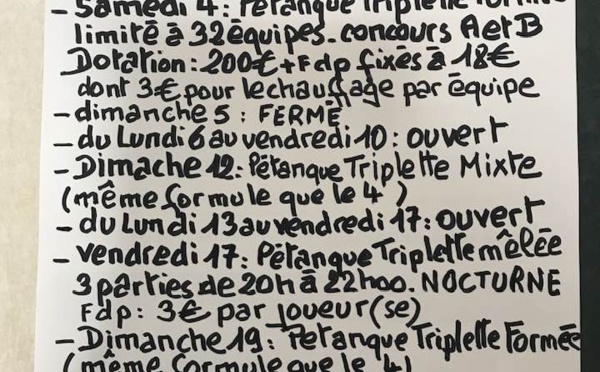 - Samedi 4: Pétanque Triplette Formée
limité à 32 équipes - concours A et B
Dotation: 200€ + Fdp fixés à 18€
dont 3€ pour le chauffage par équipe
- dimanche 5: FERMÉ
- du Lundi 6 au vendredi 10: ouvert
- Dimache 12: Pétanque Triplette Mixte
(même formule que le 4)
- du Lundi 13 au vendredi 17: ouvert
- vendredi 17: Pétanque Triplette mêlée
3 parties de 20h à 22h00. NOCTURNE
Fdp: 3€ par joueur(se)
- Dimanche 19: Petanque Triplette Formée
(même formule que le 4)